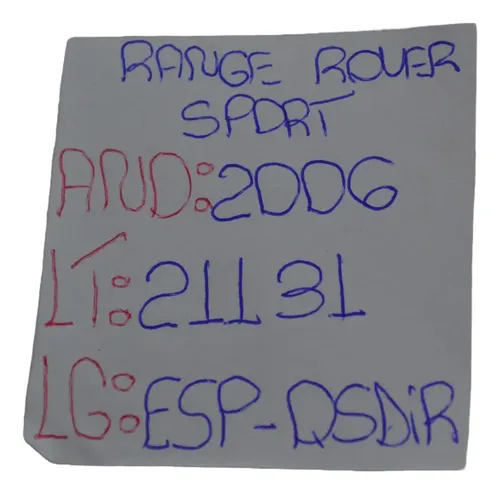 RANGE ROVER
SPORT
ANO:2006
LT:21131
LG:ESP-DSDiR